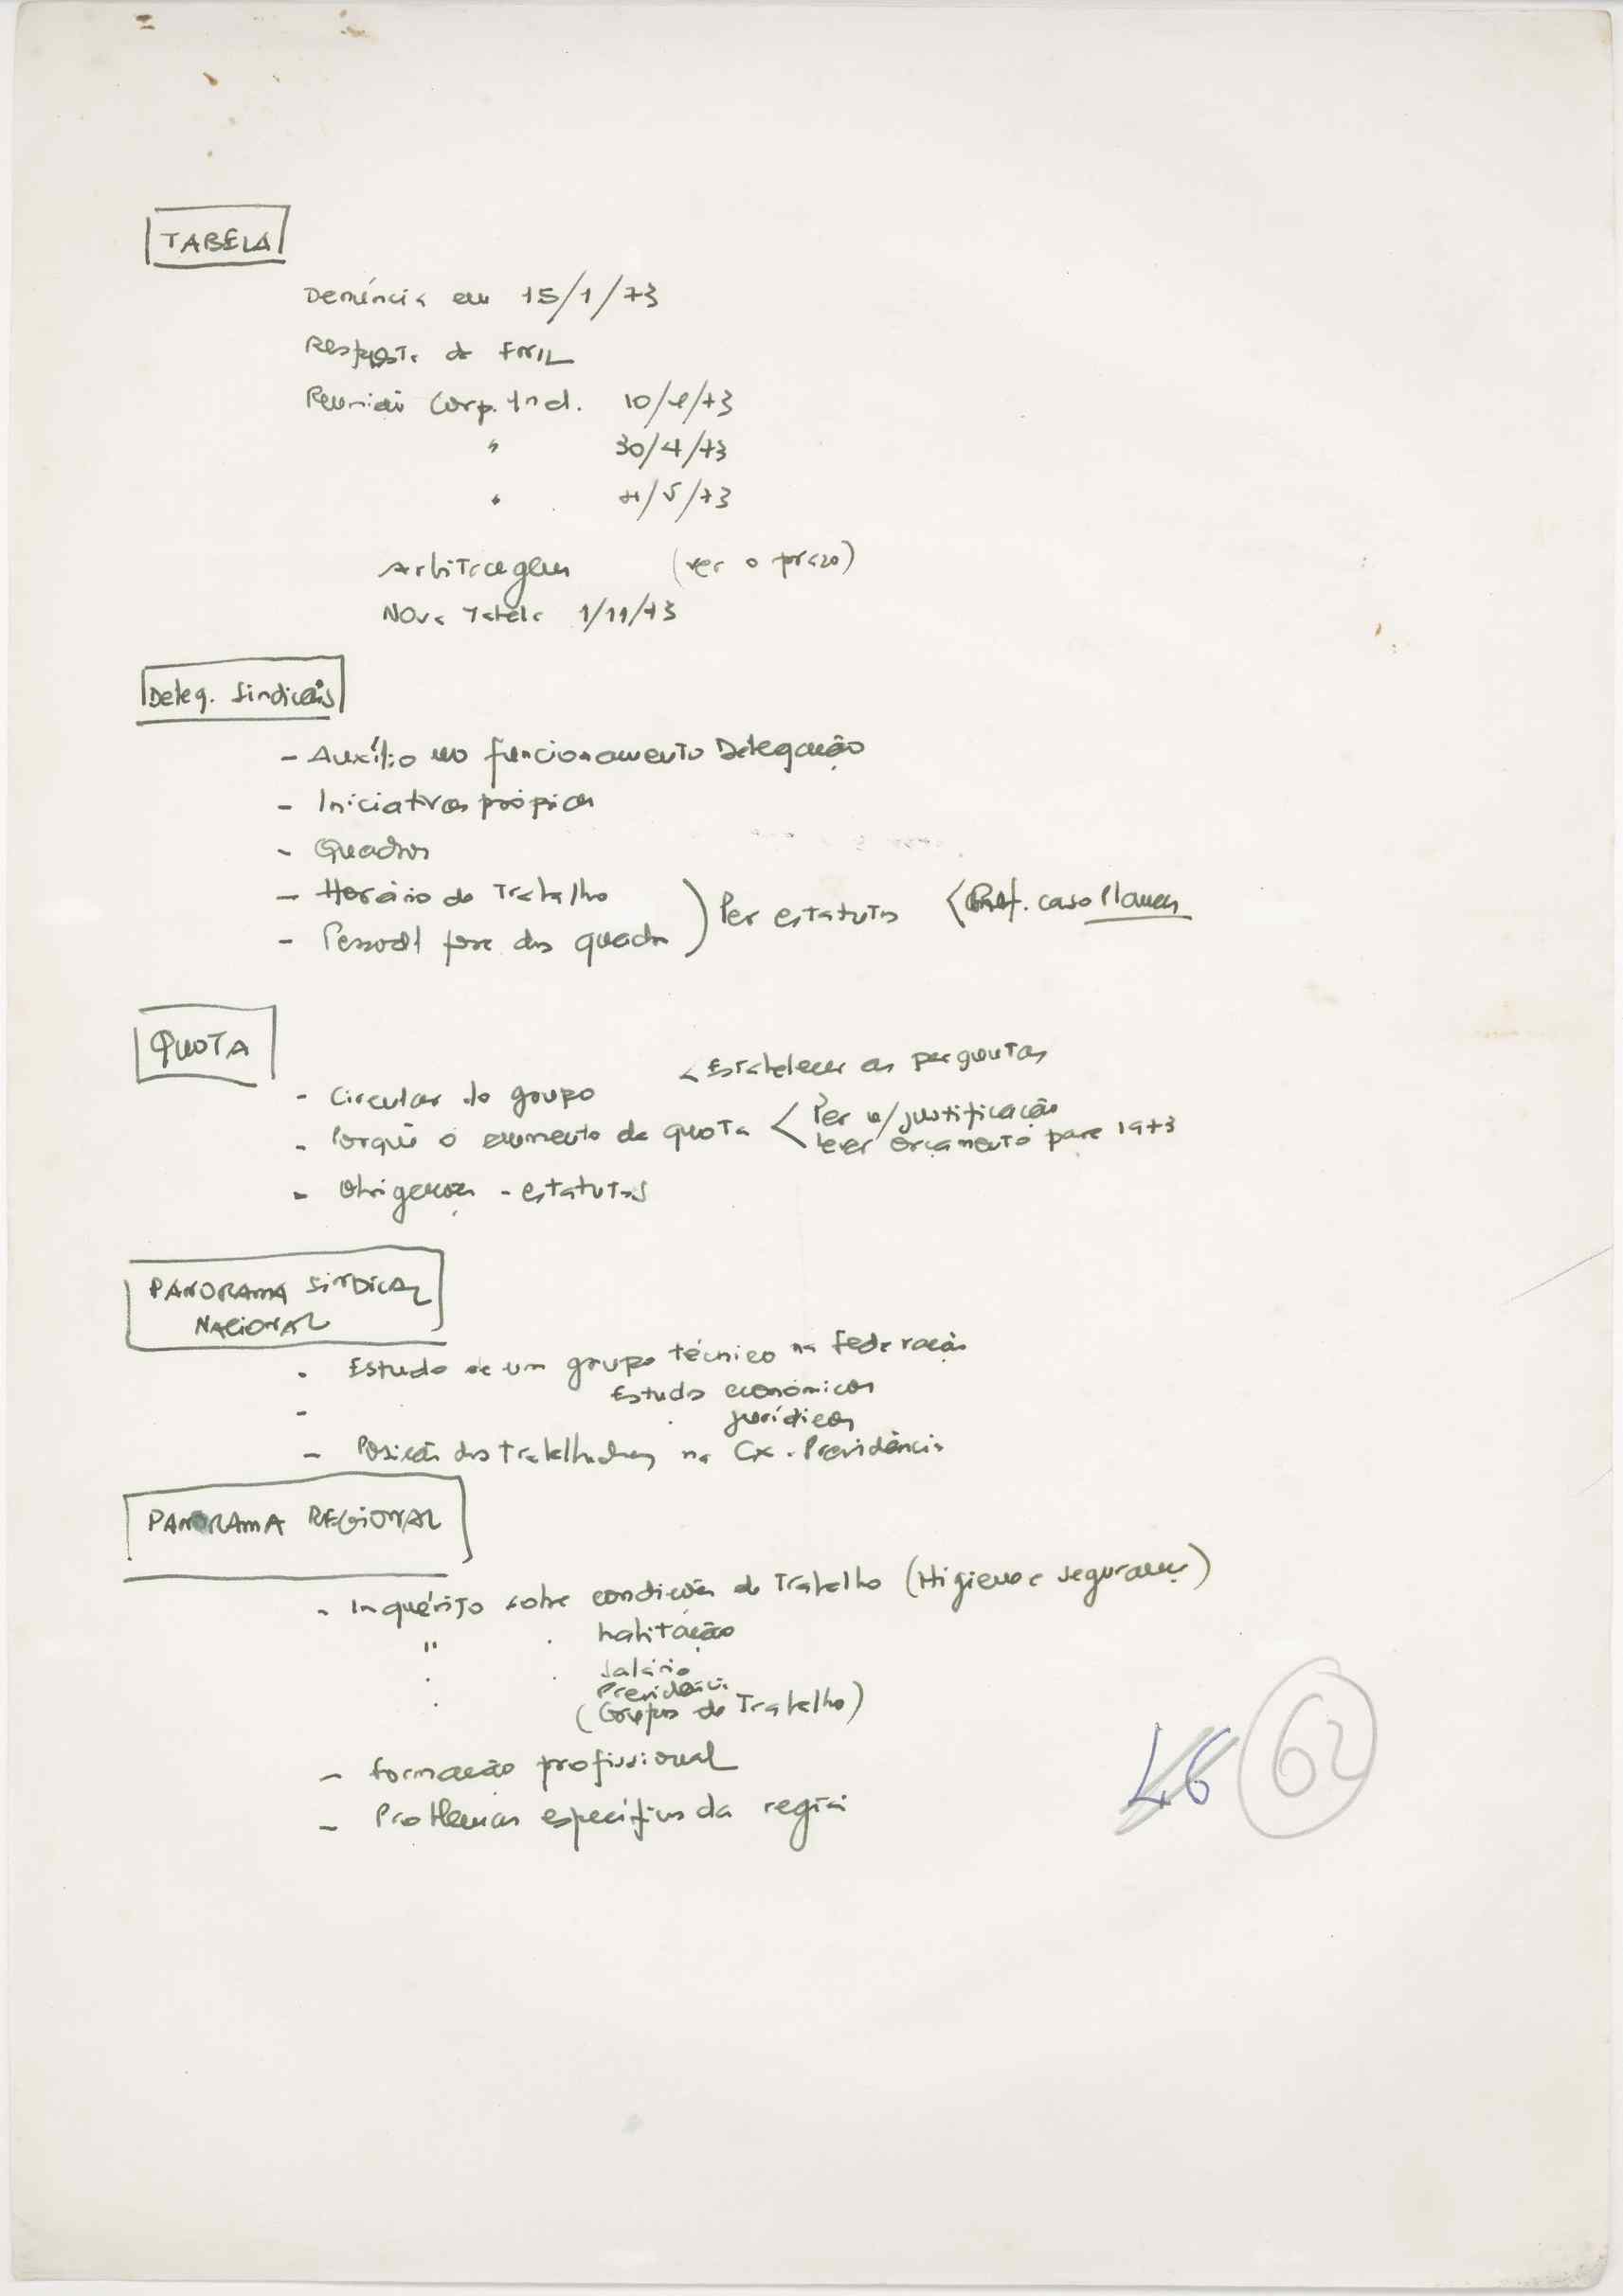 TABELA
Denúncia em 15/1/73
Resposta do FNIL
Reunião Corp. Ind. 10/4/73
" 30/4/73
" /5/73
Arbitragem (ver o prazo)
Nova Tabela 1/11/73
Deleg. Sindicais
- Auxílio no funcionamento Delegação
- Iniciativas próprias
- Quadros
- Horário de Trabalho
- Pessoal fora dos quadros ) Ler estatutos < Ref. caso
QUOTA
< Estabelecer as perguntas
- Circular do grupo
- Porquê o aumento da quota < Ler a/ justificação
Ler orçamento para 1973
- Obrigações - estatutos
PANORAMA SINDICAL
NACIONAL
- Estudo de um grupo técnico na Federação
Estudos económicos
- jurídicos
- Posição dos trabalhadores na Cx. Previdência
PANORAMA REGIONAL
- Inquérito sobre condições de Trabalho (Higiene e segurança)
" . habitação
. . Salário
Previdência
. (Grupos de Trabalho)
- Formação profissional
- Problemas específicos da região
46 62